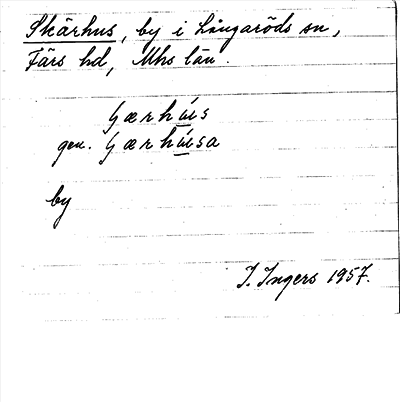 Skärhus, by i Långaröds sn,
Färs hd, Mhs län.
ɧærhúis
gen. ɧærhúisa
by
I. Ingers 1957.